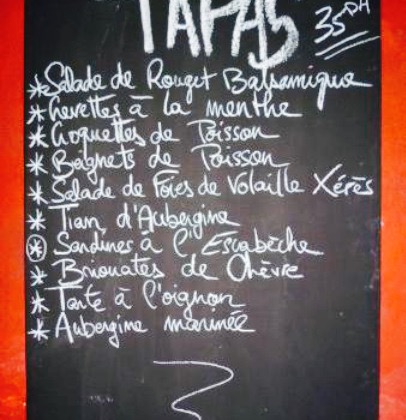 TAPAS 35 DH
* Salade de Rouget Balsamique
* Crevettes à la menthe
* Croquettes de Poisson
* Beignets de Poisson
* Salade de Foies de Volaille Xérès
* Tian d'Aubergine
* Sardines à l'Escabèche
* Briouates de Chèvre
* Tarte à l'oignon
* Aubergine marinée